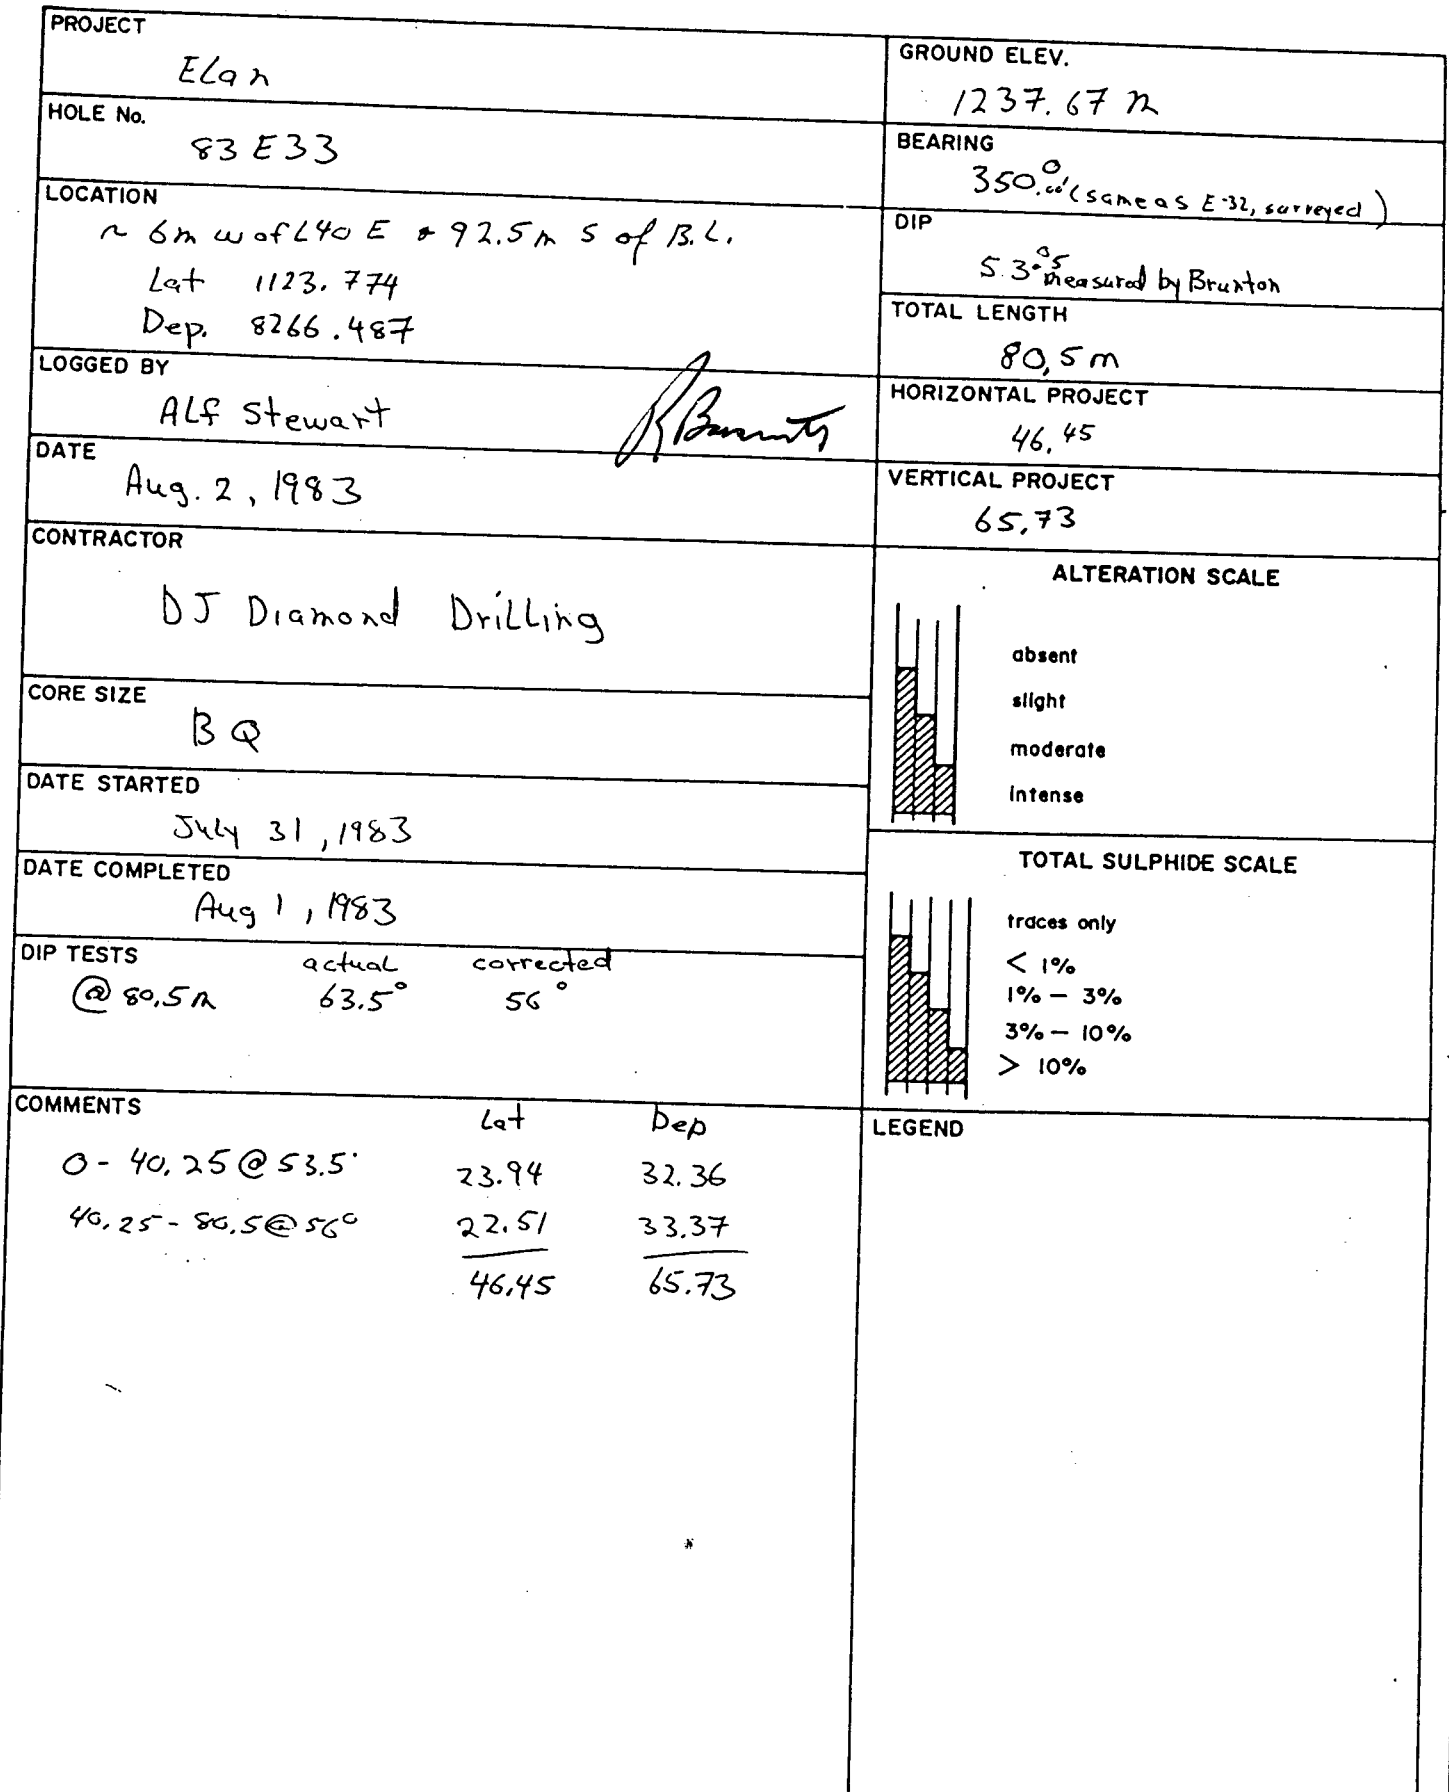 PROJECT
ELan
HOLE No.
83 E33
LOCATION
~ 6m w of L40 E & 92.5m S of B.L.
Lat 1123.774
Dep. 8266.487
LOGGED BY
ALf Stewart
DATE
Aug. 2, 1983
CONTRACTOR
DJ Diamond DriLLing
CORE SIZE
BQ
DATE STARTED
July 31, 1983
DATE COMPLETED
Aug 1, 1983
DIP TESTS actual corrected
@ 80.5m 63.5° 56°
COMMENTS Lat Dep
0 - 40.25 @ 53.5° 23.94 32.36
40.25 - 80.5 @ 56° 22.51 33.37
46.45 65.73
GROUND ELEV.
1237.67 m
BEARING
350° (same as E-32, surveyed)
DIP
53.5° measured by Brunton
TOTAL LENGTH
80.5m
HORIZONTAL PROJECT
46.45
VERTICAL PROJECT
65.73
ALTERATION SCALE
absent
slight
moderate
intense
TOTAL SULPHIDE SCALE
traces only
< 1%
1% – 3%
3% – 10%
> 10%
LEGEND